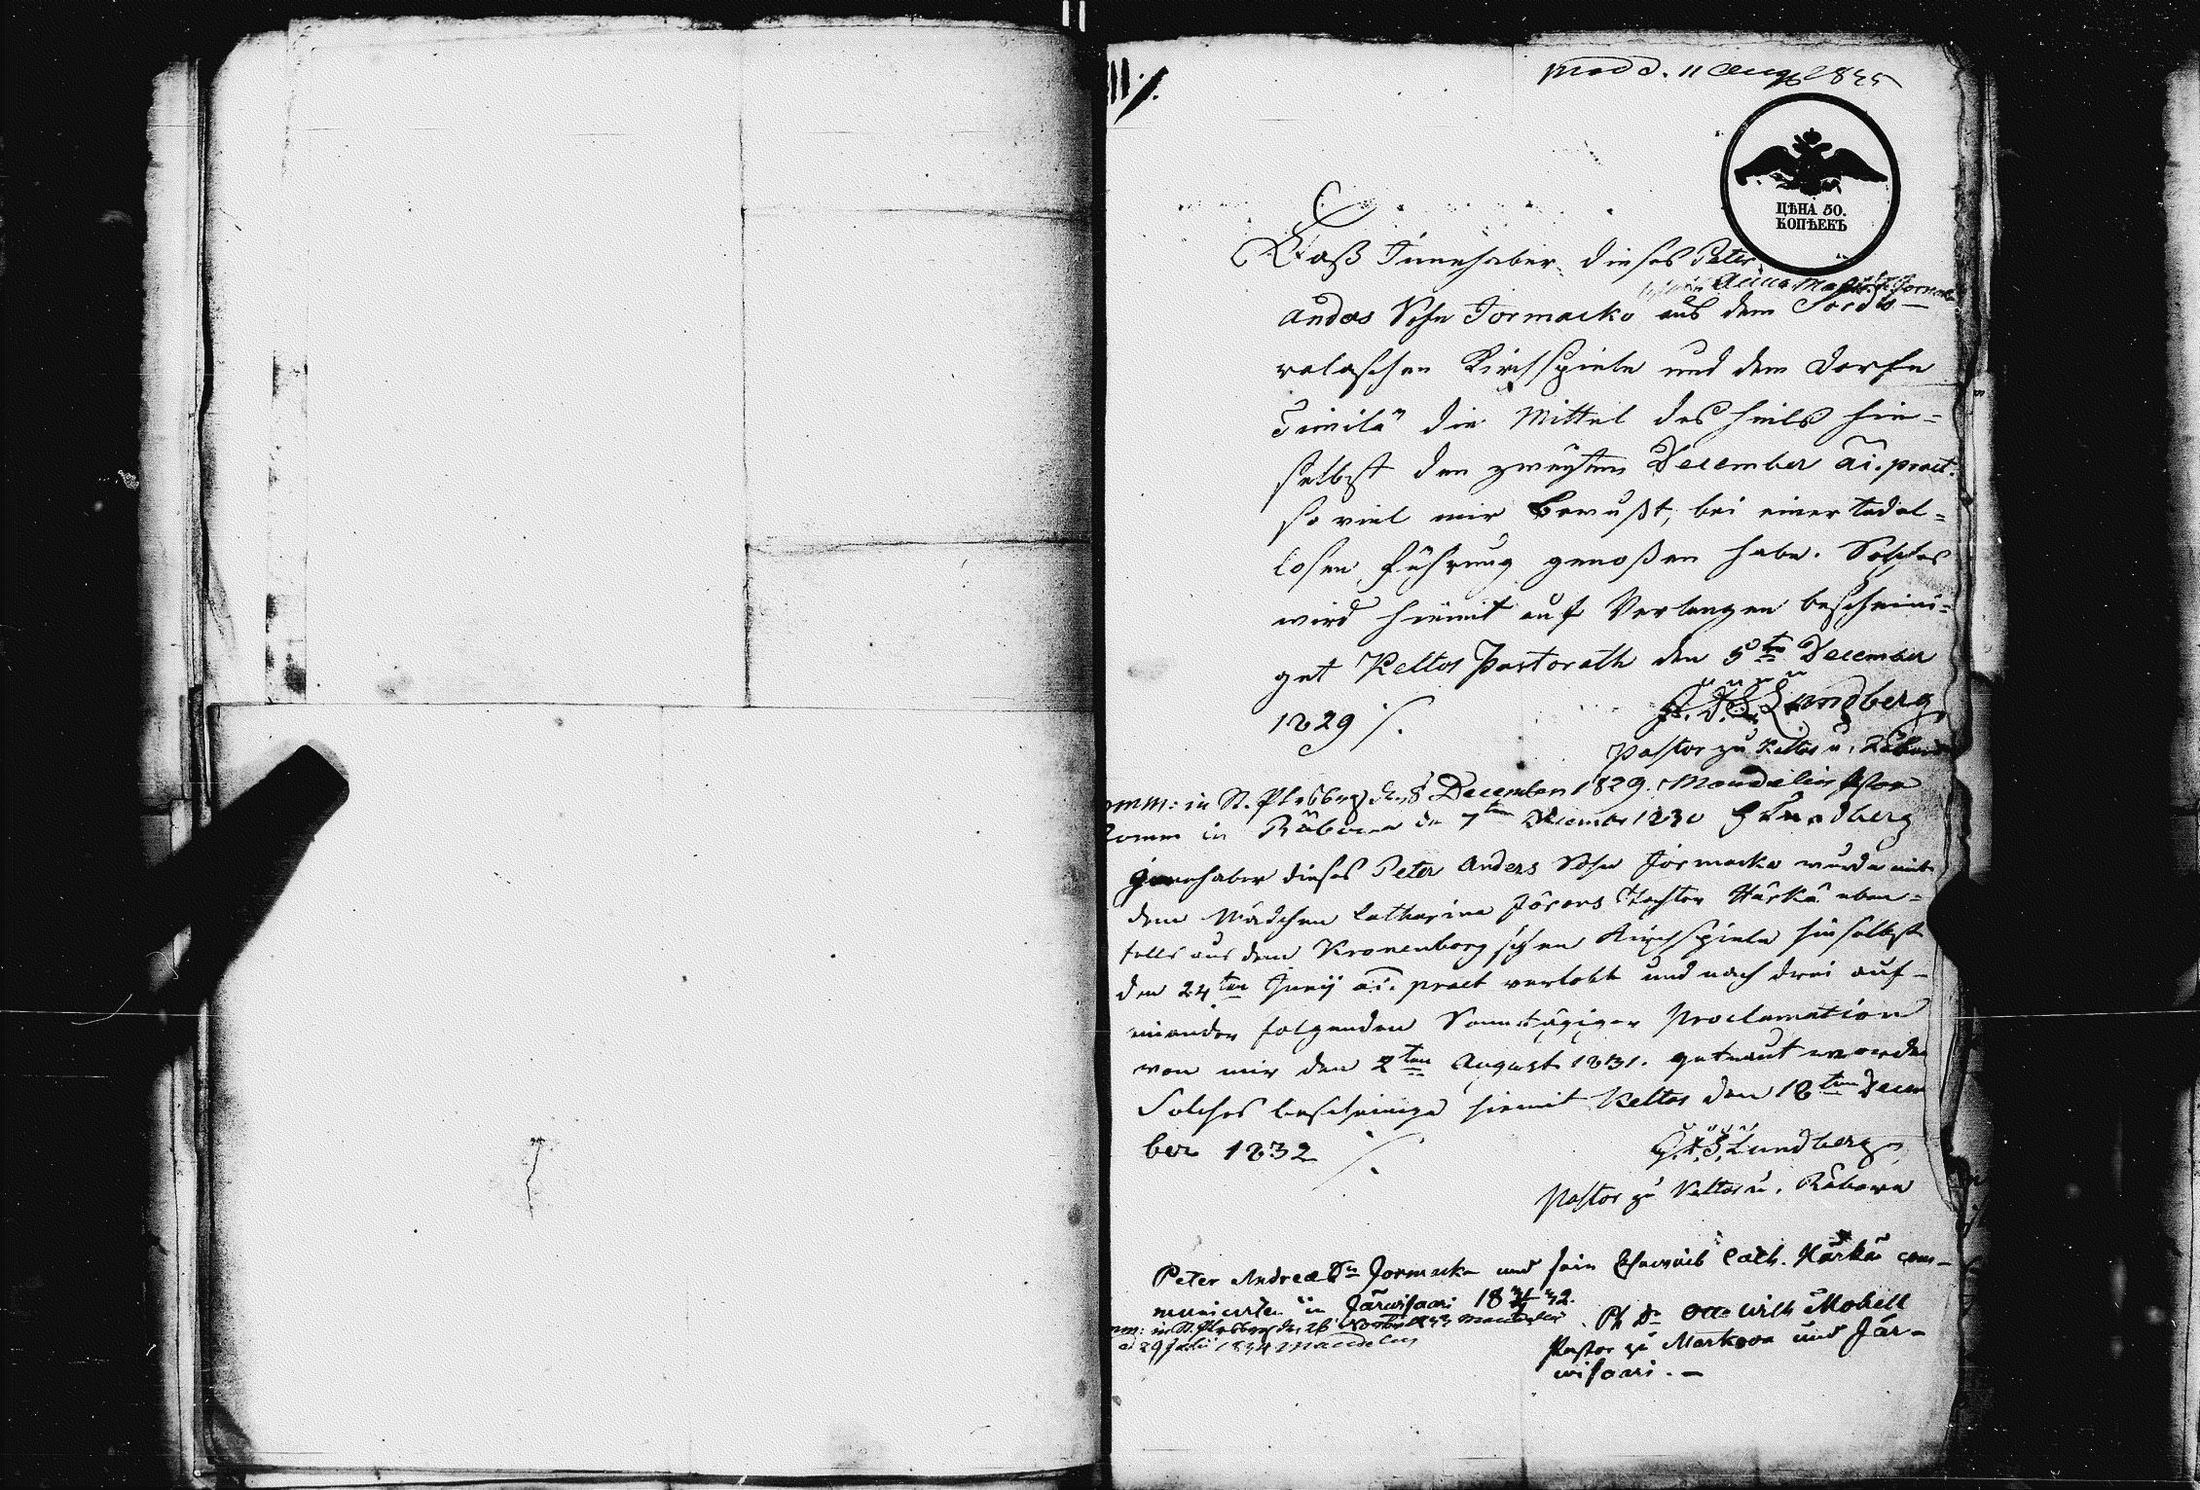 prod d. 11 Aug 1835
ЦѢНА 50.
КОПѢЕКЪ
Daß Innehaber dieses Peter
Anna
Anders Sohn Jormacko aus dem Sordo-
walaschen Kirchspiele und dem Dorfe
die Mittel des Heils hie=
selbst den zweyten December ai. praet.
so viel mir bewußt, bei einer tadel=
losen Führung genoßen habe. Solches
wird hiemit auf Verlangen bescheini=
get Keltos Pastorath den 5ten December
1829 ./.
Lundberg
Pastor zu Keltos u. Räbowa
comm: in St. Ptrsbrg d. 8 December 1829. Mandelin Pstor
Comm in Räbowa den 7ten December 1830 Lundberg
Innehaber dieses Peter Anders Sohn Jormacko wurde mit
dem Mädchen Catharina Jörans Tochter Härkä eben=
falls aus dem Kronenborgschen Kirchspiele hieselbst
den 24ten Junij ai. praet verlobt und nach drei auf-
einander folgenden Sonntägiger Proclamation
von mir den 2ten August 1831. getraut worden
Solches bescheinige hiemit Keltos den 18ten Decem
ber 1832 ./.
Lundberg
Pastor zu Keltos u. Räbowa
Peter Andreæ Sn Jormacko und sein Eheweib Cath. Härkä com-
municirten in Järwisaari 18 32.
comm: in St. Ptrsbrg d. 26 Mandelin
d 29 Julii 1834 Mandelin
Otto Wilh Mobell
Pastor zu Markowa und Jär-
wisaari. -